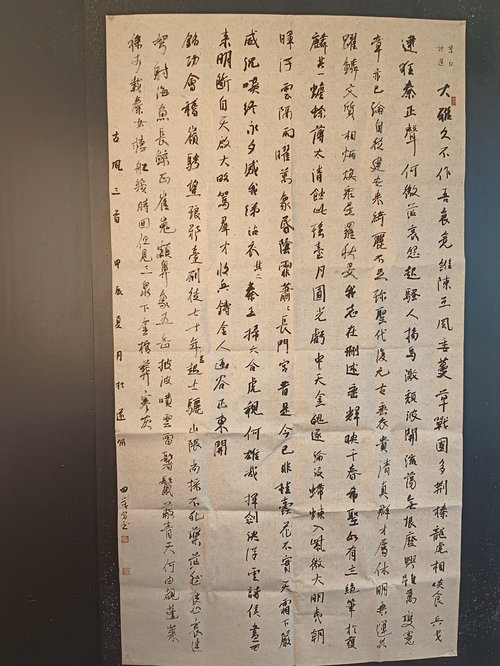 李白詩選
大雅久不作吾衰竟誰陳王風委蔓草戰國多荆榛龍虎相啖食兵戈
逮狂秦正聲何微茫哀怨起騷人揚馬激頹波開流蕩無垠廢興雖萬變憲
章亦已淪自從建安來綺麗不足珍聖代復元古垂衣貴清真群才屬休明乘運共
躍鱗文質相炳煥衆星羅秋旻我志在刪述垂輝映千春希聖如有立絕筆於獲
麟其一蟾蜍薄太清蝕此瑤臺月圓光虧中天金魄遂淪沒螮蝀入紫微大明夷朝
暉浮雲隔兩曜萬象昏陰霏蕭々長門宮昔是今已非桂蠹花不實天霜下嚴
威沉嘆終永夕感我涕沾衣其二秦王掃六合虎視何雄哉揮劍決浮雲諸侯盡西
來明斷自天啟大略駕群才收兵鑄金人函谷正東開
銘功會稽嶺騁望琅邪臺刑徒七十萬起土驪山隈尚採不死藥茫然使心哀連
弩射海魚長鯨正崔嵬額鼻象五岳揚波噴雲雷鬐鬣蔽青天何由睹蓬萊
徐市載秦女樓船幾時回但見三泉下金棺葬寒灰
古風三首 甲辰夏月於